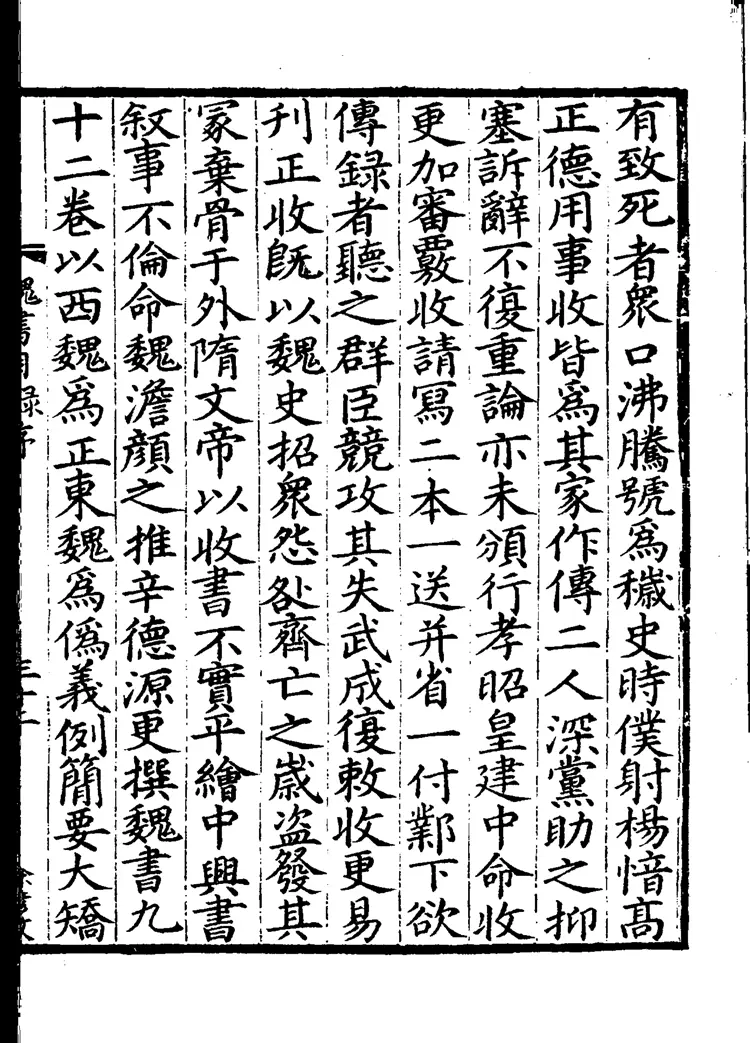 有致死者衆口沸騰號爲穢史時僕射楊愔高
正德用事收皆爲其家作傳二人深黨助之抑
塞訴辭不復重論亦未頒行孝昭皇建中命收
更加審覈收請寫二本一送并省一付鄴下欲
傳録者聽之群臣競攻其失武成復敕收更易
刊正收旣以魏史招衆怨咎齊亡之歲盗發其
冢棄骨于外隋文帝以收書不實平繪中興書
叙事不倫命魏澹顔之推辛德源更撰魏書九
十二卷以西魏爲正東魏爲僞義例簡要大矯
魏書目録序